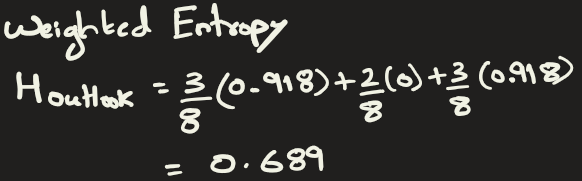 Weighted Entropy
H outlook = 3/8 (0.918) + 2/8 (0) + 3/8 (0.918)
= 0.689